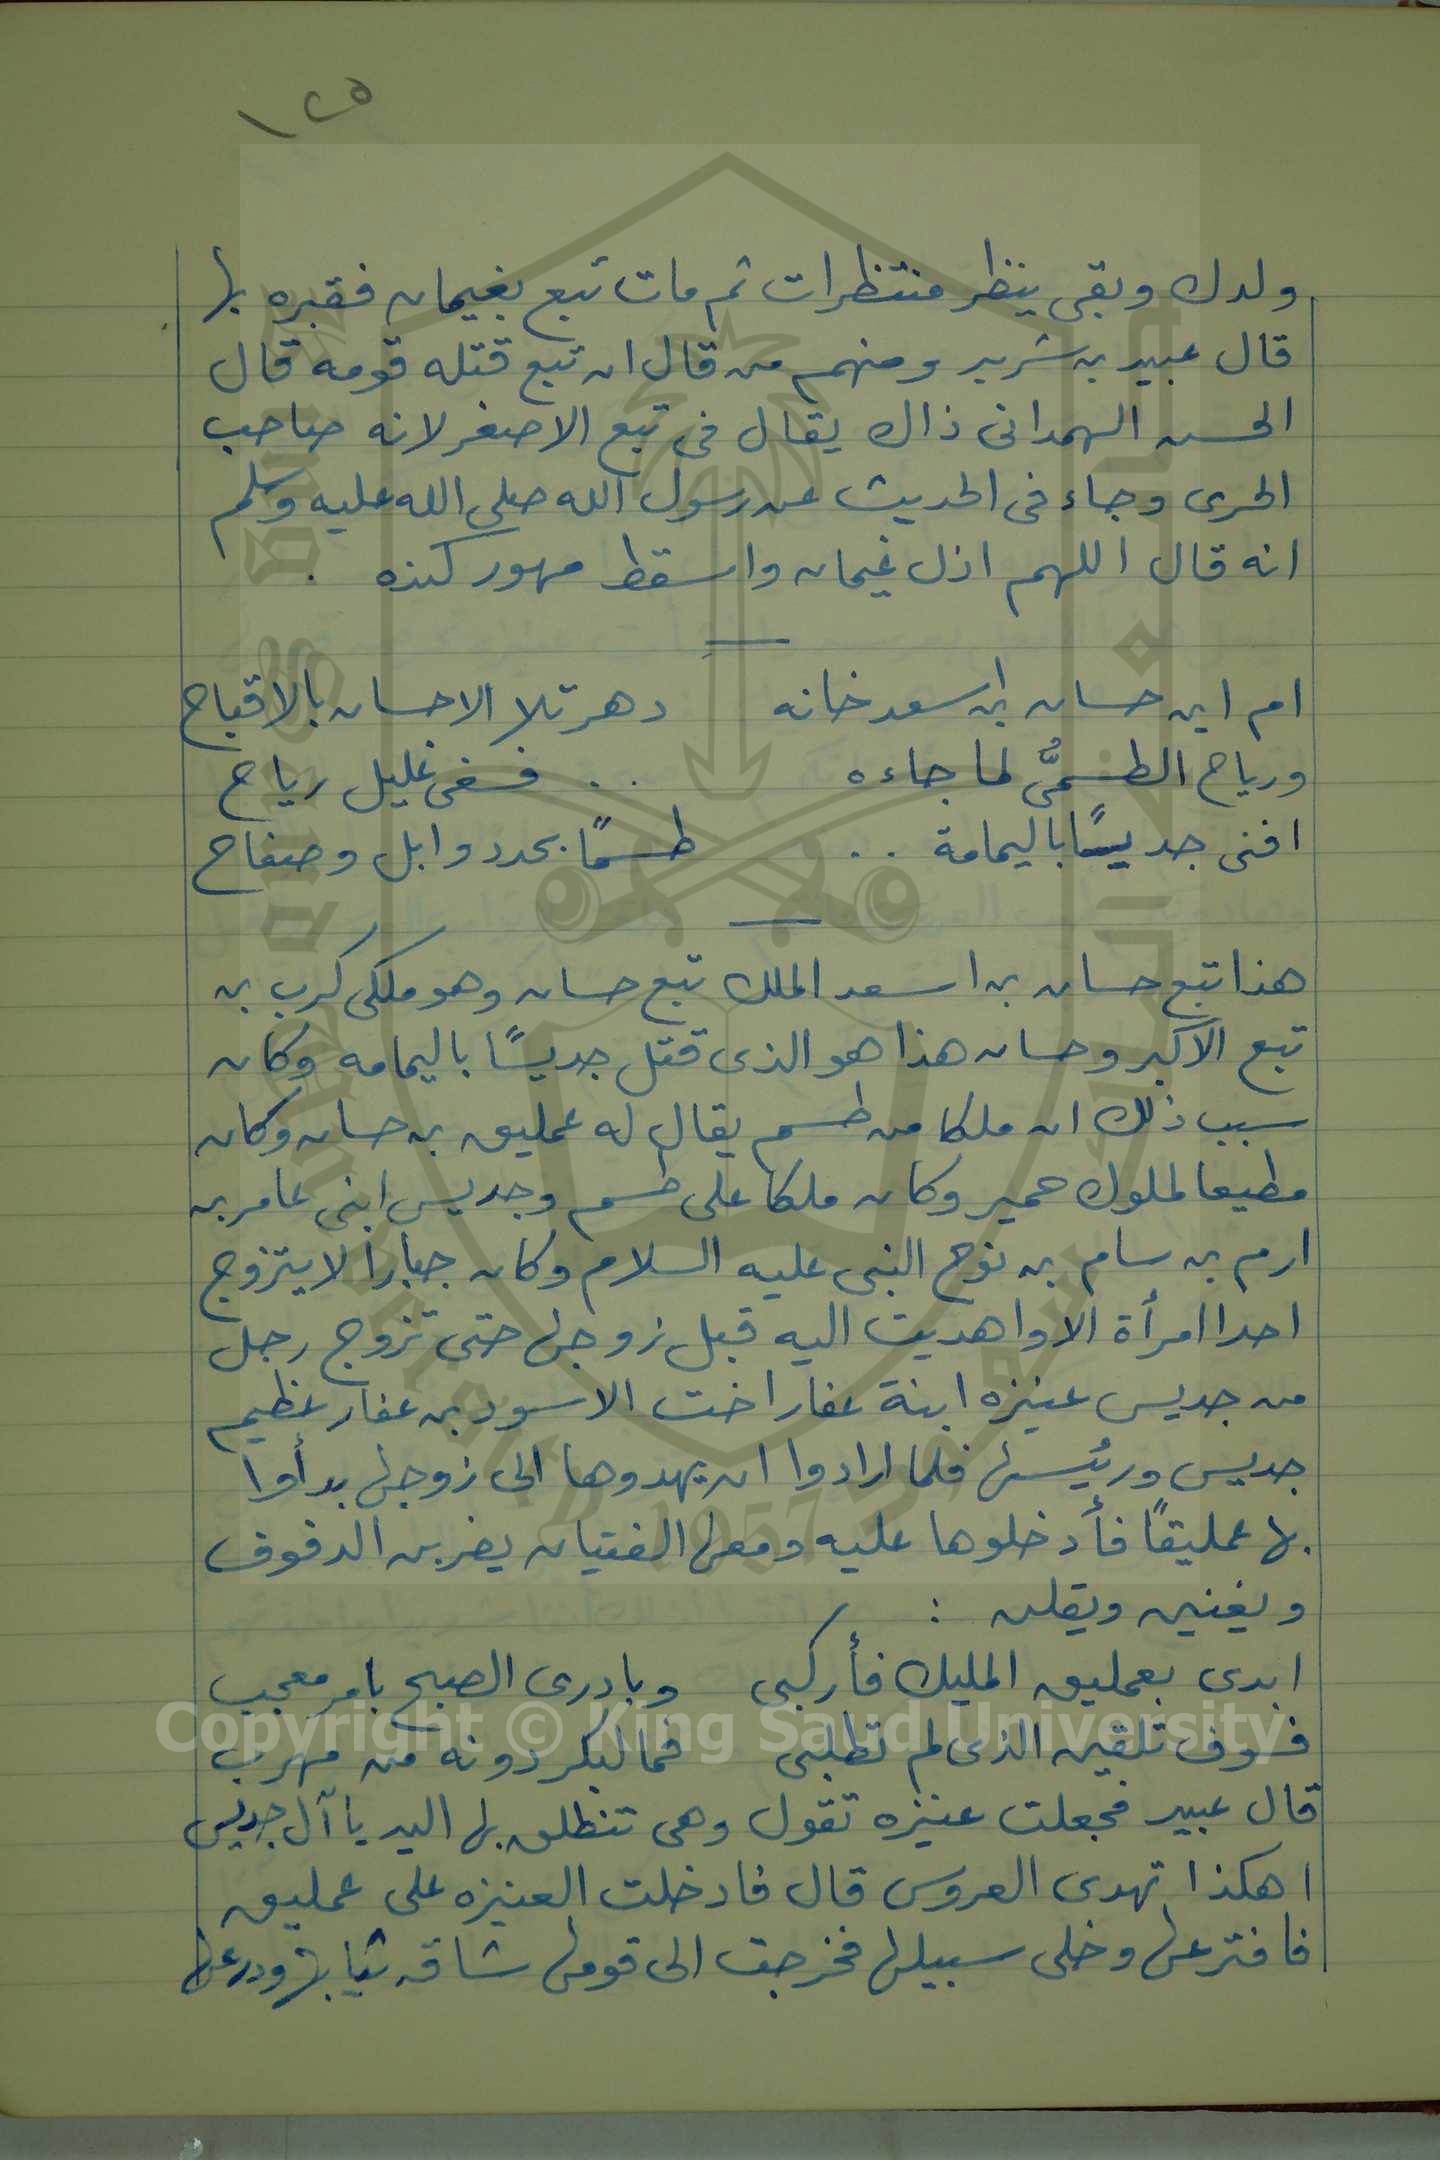 ١٢٥
ولدك وبقى ينظر منتظرات ثم مات تبع بغيمان فقبره بها
قال عبيد بن شريه ومنهم من قال ان تبع قتله قومه قال
الحسن الهمدانى ذاك يقال فى تبع الاصغر لانه صاحب
الحرى وجاء فى الحديث عن رسول الله صلى الله عليه وسلم
انه قال اللهم اذل غيمان واسقط مهور كنده .
ام اين حسان بن اسعد خانه دهر تلا الاحسان بالاقباح
ورياح الطسمىُّ لما جاءه .. فسفى غليل رياح
افنى جديسًا باليمامة .. طسمًا بحدد وابل وصفاح
هذا تبع حسان بن اسعد الملك تبع حسان وهو ملكى كرب بن
تبع الاكبر وحسان هذا هو الذى قتل جديسًا باليمامه وكان
سبب ذلك ان ملكا من طسم يقال له عمليق بن حسان وكان
مطيعا لملوك حمير وكان ملكا على طسم وجديس ابنى عامر بن
ارم بن سام بن نوح النبى عليه السلام وكان جبارا لا يتزوج
احدا امرأة الا واهديت اليه قبل زوجها حتى تزوج رجل
من جديس عنيزه ابنة عفار اخت الاسود بن عفار عظيم
جديس ورئيسها فلما ارادوا ان يهدوها الى زوجها بدأوا
بها عمليقًا فأدخلوها عليه ومعها الفتيان يضربن الدفوف
ويغنين ويقلن :
ابدى بعمليق المليك فأركبى وبادرى الصبح بامر معجب
فسوف تلقين الذى لم تطلبى فما لبكر دونه من مهرب
قال عبيد فجعلت عنيزه تقول وهى تنطلق بها اليه يا آل جديس
اهكذا تهدى العروس قال فادخلت العنيزه على عمليق
فافترعها وخلى سبيلها فخرجت الى قومها شاقه ثيابها ودرعها
Copyright © King Saud University
1957